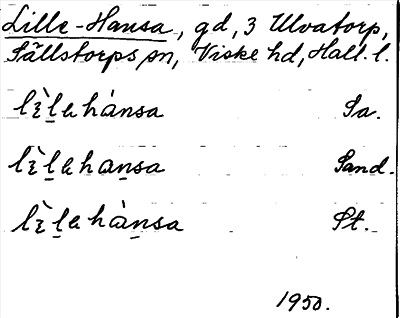 Lille-Hansa, gd, 3 Ulvatorp,
Sällstorps sn, Viske hd, Hall. l.
lɛ̀lahánsa Sa.
lɛ̀lahansa Sand.
lɛ̀lahànsa St.
1950.